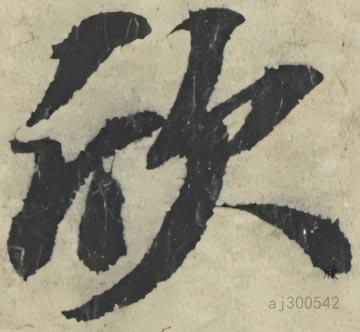 欣
aj300542